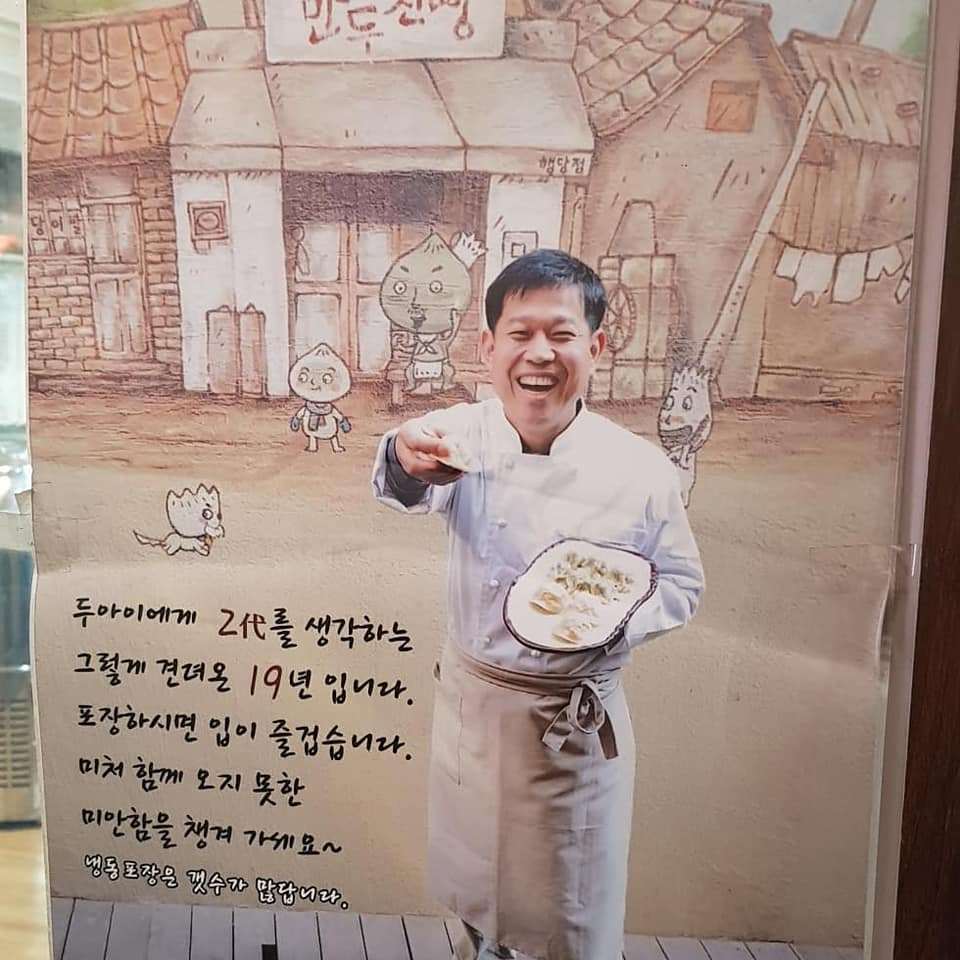 만두전빵
행당점
두아이에게 2代를 생각하는
그렇게 견뎌온 19년 입니다.
포장하시면 입이 즐겁습니다.
미처 함께 오지 못한
미안함을 챙겨 가세요~
냉동포장은 갯수가 많답니다.